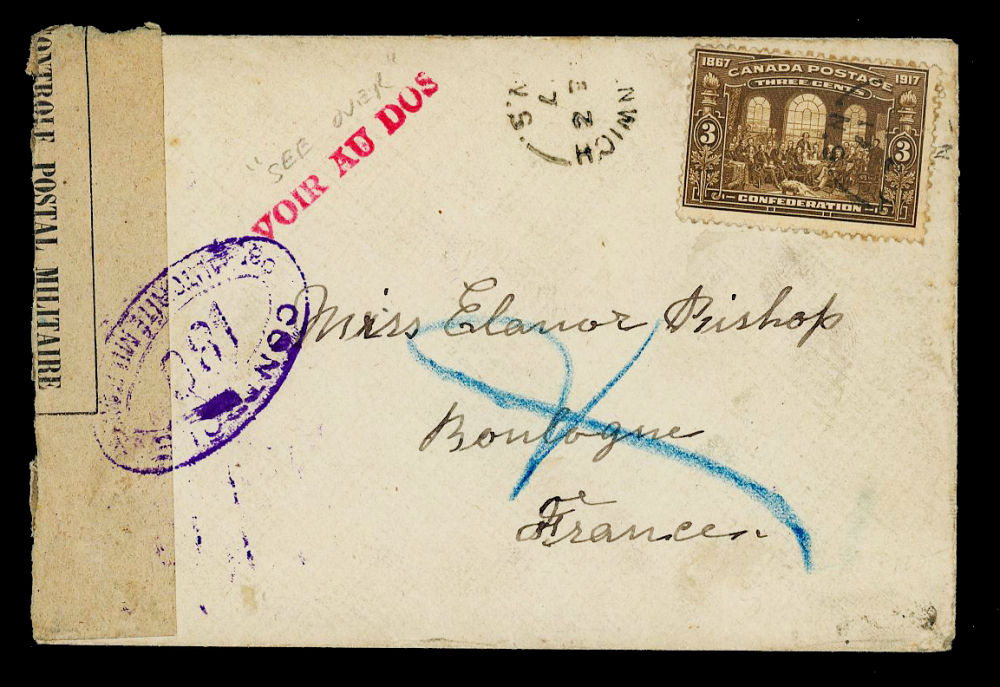 CONTROLE POSTAL MILITAIRE
"SEE OVER"
VOIR AU DOS
N.S.
1867 CANADA POSTAGE 1917
THREE CENTS
3 3
CONFEDERATION
Miss Elanor Bishop
Boulogne
France.